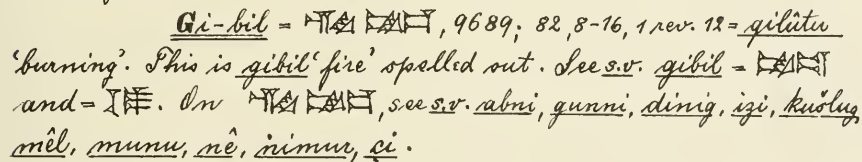 Gi-bil = 9689; 82,8-16, 1 rev. 12 = gilûtu
'burning'. This is gibil 'fire' spelled out. See s.v. gibil =
and = . On , see s.v. abni, gunni, dinig, izi, kušlug,
mêl, munu, nê, nimur, çi.